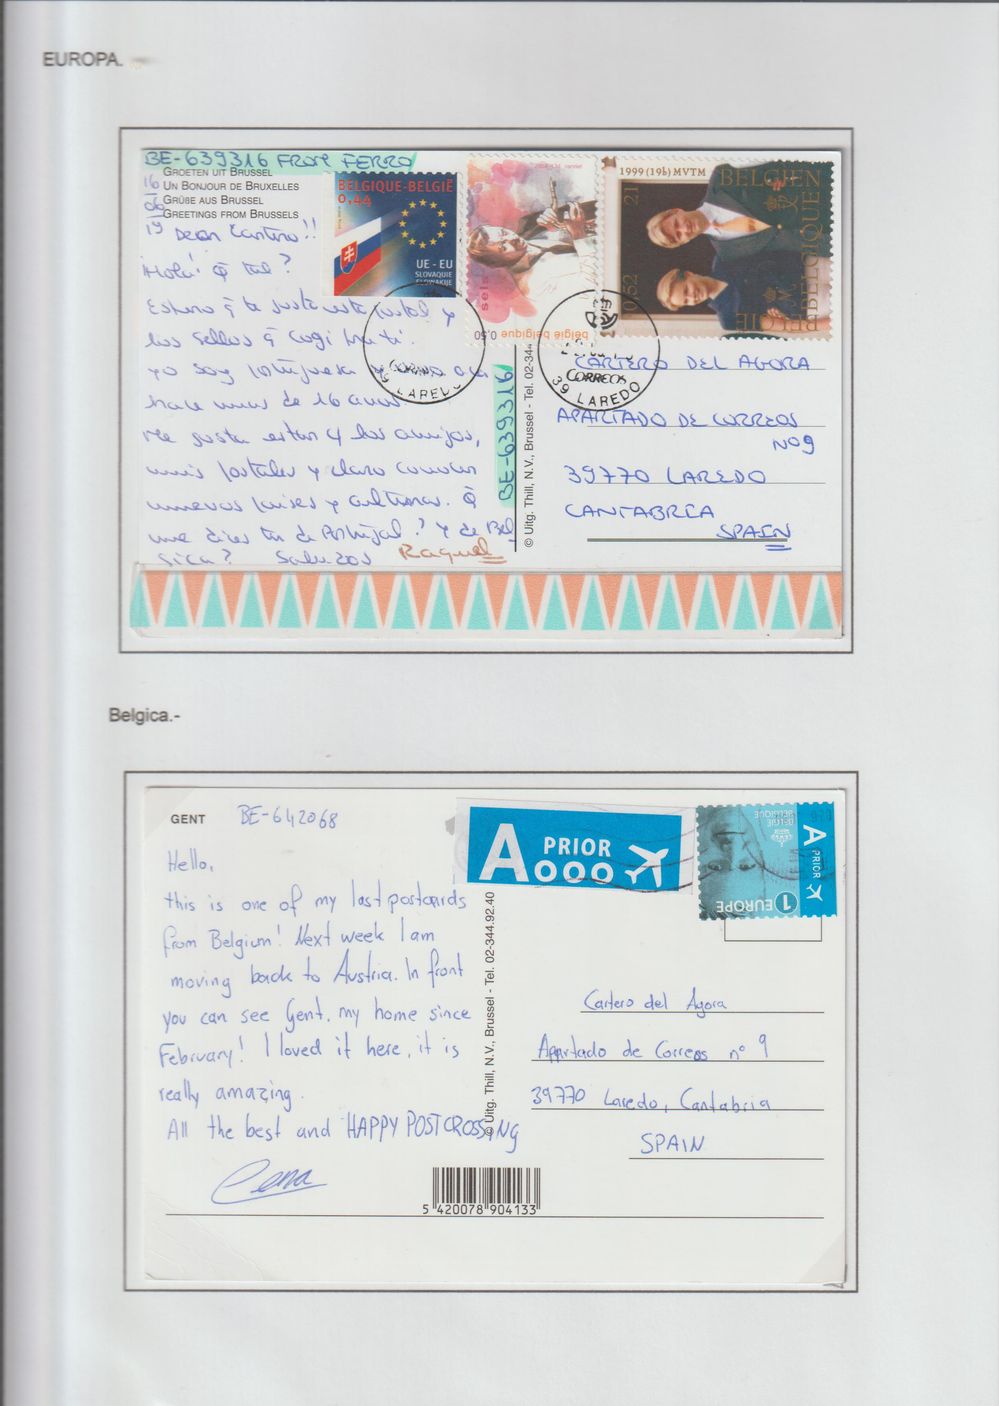 EUROPA.
BE-639316 FROM FERRO
GROETEN UIT BRUSSEL
UN BONJOUR DE BRUXELLES
GRÜBE AUS BRUSSEL
GREETINGS FROM BRUSSELS
16
06
19
Dear Cartero!!
¡Hola! Q tal?
Espero q te guste esta postal y
los sellos q cogi para ti.
Yo soy portuguesa y
hace mas de 16 anos.
Me gusta estar y los amigos,
mis postales y claro conocer
nuevos paises y culturas. Q
me dices tu de Portugal? Y de Bel
gica? Saludos Raquel
BELGIQUE-BELGIË
0,44
UE - EU
SLOVAQUIE
SLOWAKIJE
sels
0,50 belgië belgique
1999 (19h) MVTM
BELGIEN
BELGIQUE
BELGIË
21
0,52
CORREOS
39 LAREDO
CORREOS
39 LAREDO
BE-639316
© Uitg. Thill, N.V., Brussel - Tel. 02-344
CARTERO DEL AGORA
APARTADO DE CORREOS
Nº9
39770 LAREDO
CANTABRIA
SPAIN
Belgica.-
GENT
BE-642068
Hello,
this is one of my last postcards
from Belgium! Next week I am
moving back to Austria. In front
you can see Gent, my home since
February! I loved it here, it is
really amazing.
All the best and HAPPY POSTCROSSING
Lena
A PRIOR
000
BELGIQUE
BELGIË
A PRIOR
1 EUROPE
© Uitg. Thill, N.V., Brussel - Tel. 02-344.92.40
Cartero del Agora
Appartado de Correos nº 9
39770 Laredo, Cantabria
SPAIN
5 420078 904133